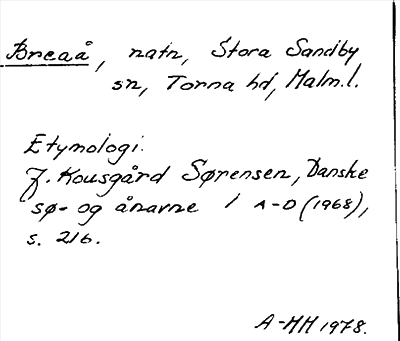 Breaå, natn, Stora Sandby
sn, Torna hd, Malm.l.
Etymologi:
J. Kousgård Sørensen, Danske
sø- og ånavne 1 A-D (1968),
s. 216.
A-HH 1978.